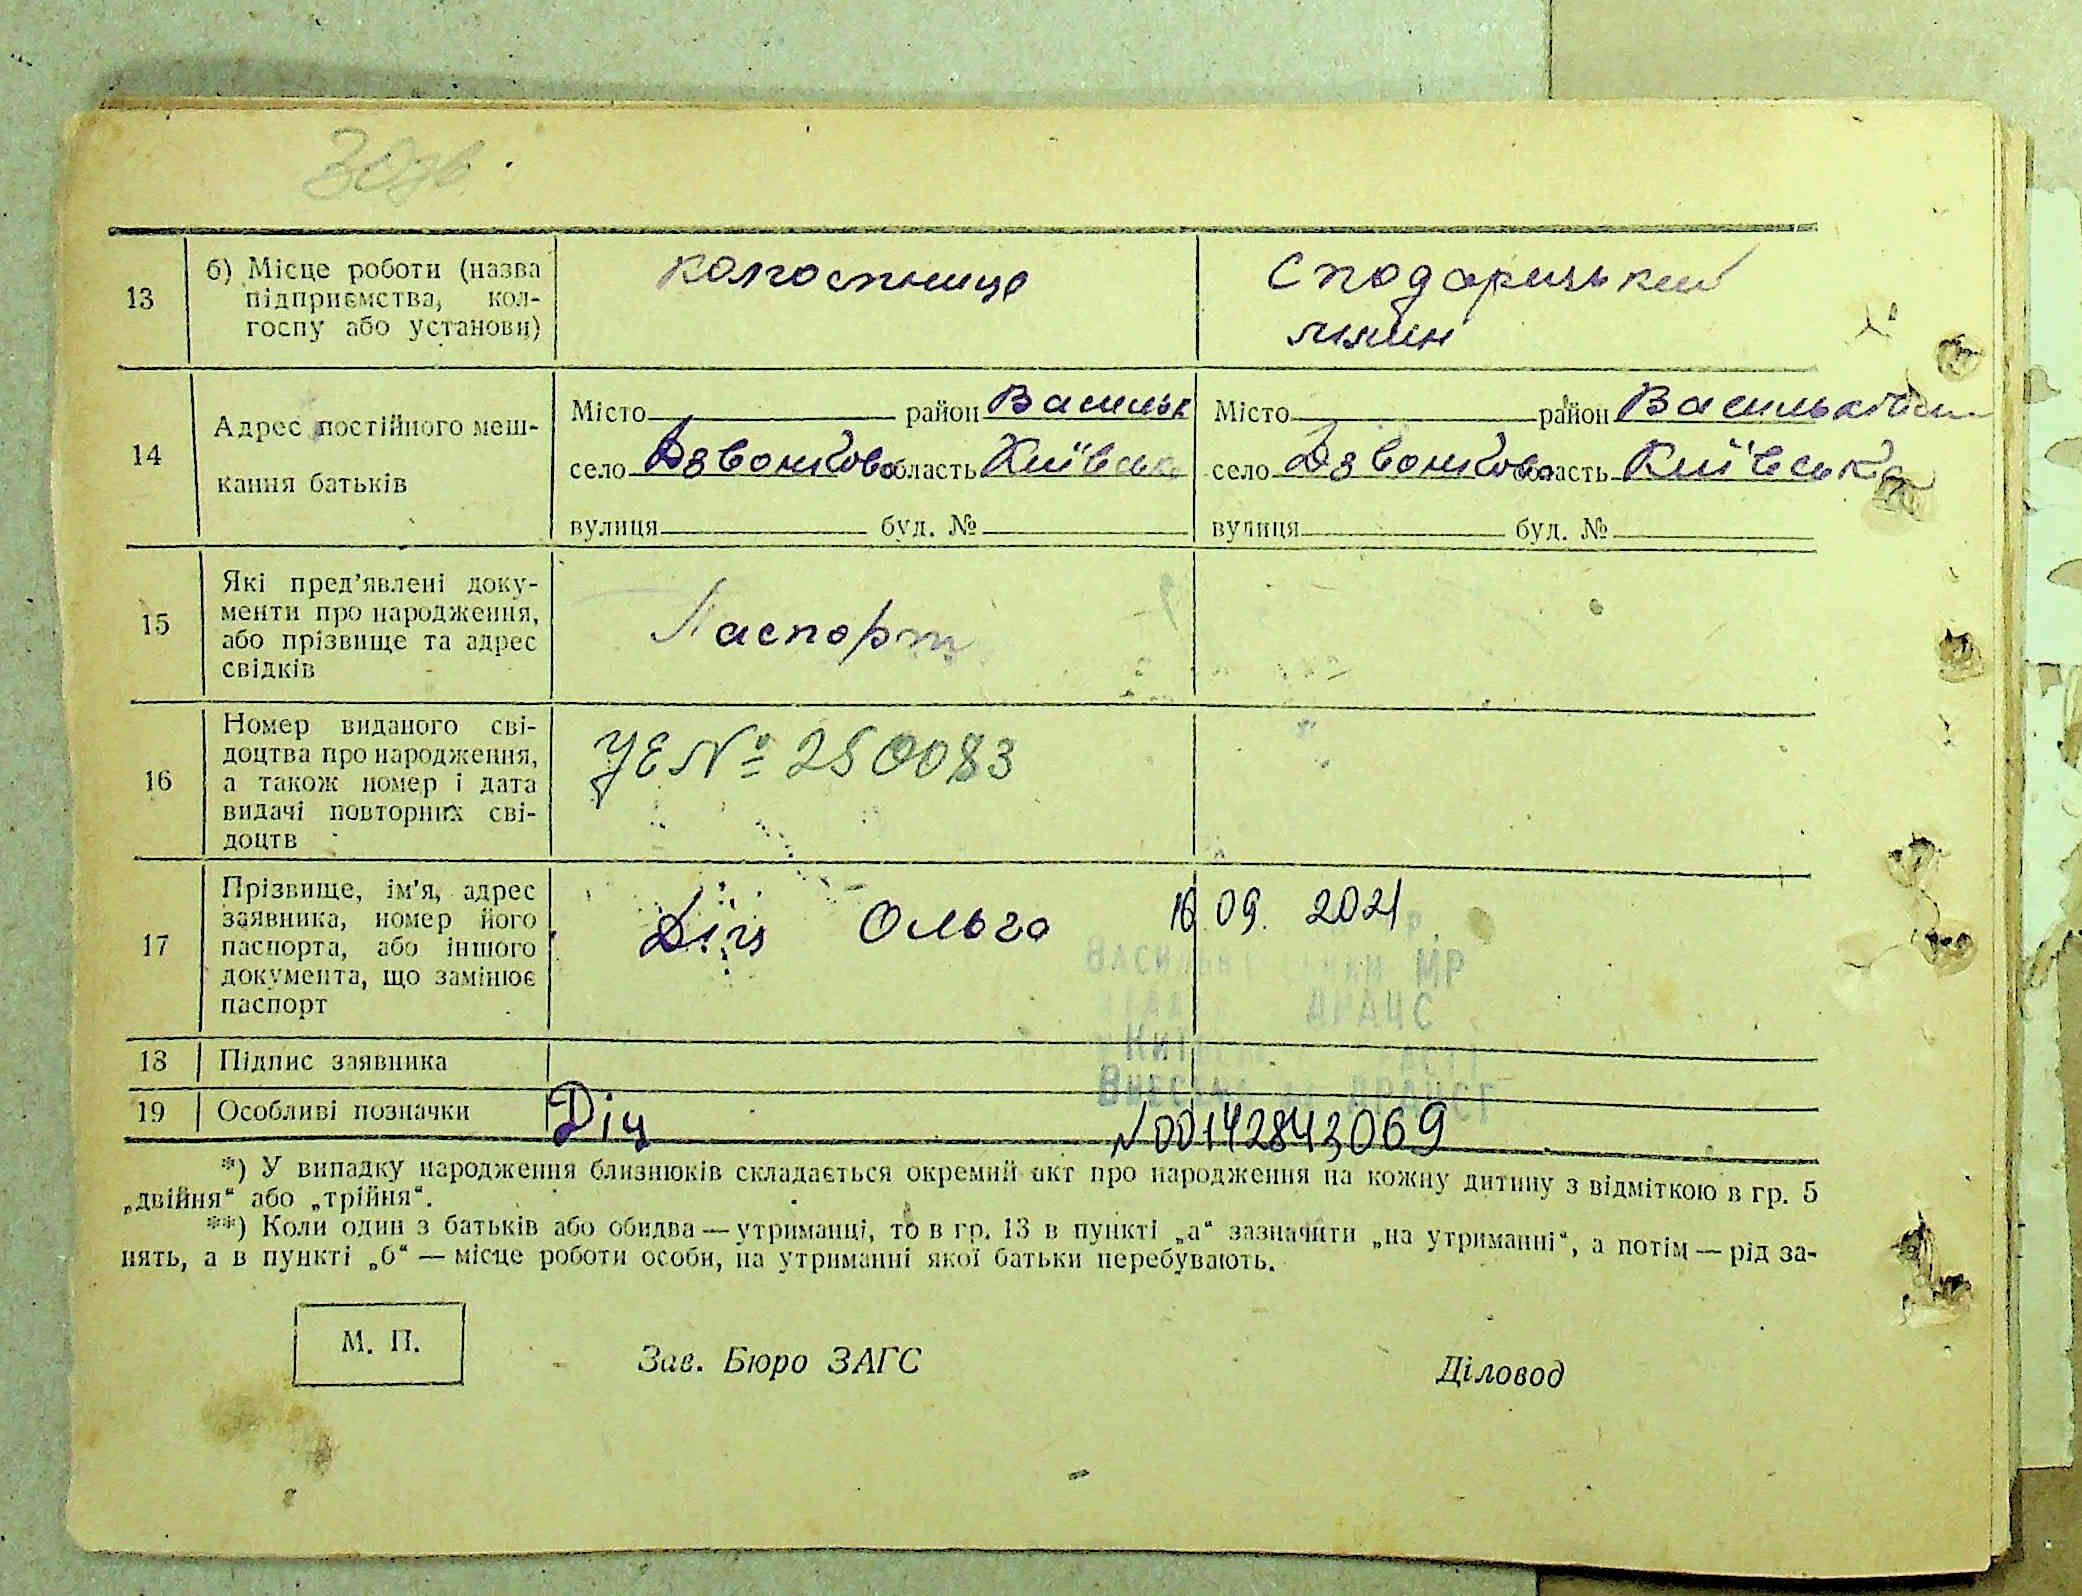 30зв
13
б) Місце роботи (назва
підприємства, кол-
госпу або установи)
колгоспниця
млин
14
Адрес постійного меш-
кання батьків
Місто район Васильк
село Дзвонкова область Київська
вулиця буд. №
Місто район Васильківськ
село Дзвонкова область Київська
вулиця буд. №
15
Які пред’явлені доку-
менти про народження,
або прізвище та адрес
свідків
Паспорт
16
Номер виданого сві-
доцтва про народження,
а також номер і дата
видачі повторних сві-
доцтв
УЕ № 250083
17
Прізвище, ім’я, адрес
заявника, номер його
паспорта, або іншого
документа, що замінює
паспорт
Діц Ольга
16 09. 2021 р.
МР
ДРАЦС
Внесено до ДРАЦСГ
18 Підпис заявника
19 Особливі позначки
Діц
№00142843069
*) У випадку народження близнюків складається окремий акт про народження на кожну дитину з відміткою в гр. 5
„двійня“ або „трійня“.
**) Коли один з батьків або обидва — утриманці, то в гр. 13 в пункті „а“ зазначити „на утриманні“, а потім — рід за-
нять, а в пункті „б“ — місце роботи особи, на утриманні якої батьки перебувають.
М. П.
Зав. Бюро ЗАГС
Діловод